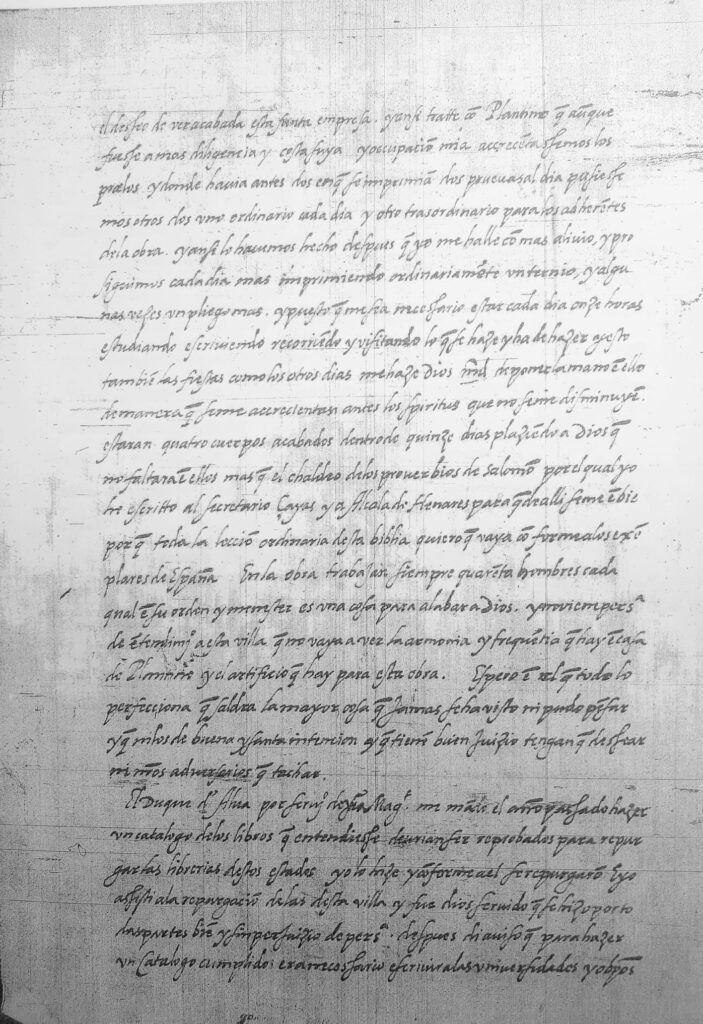 el desseo de ver acabada esta santa empresa. yansi tratte cō Plantino q̄ aūque
fuesse a mas diligencia y costa suya y occupaciō mia accrecentassemos los
prelos y donde havia antes dos en q̄ se imprimiā dos pruevas al dia pusiesse
mos otros dos uno ordinario cada dia y otro trasordinario para los adherētes
dela obra. yansi lo havemos hecho despues q̄ yo me halle cō mas alivio, y pro
siguimos cada dia mas imprimiendo ordinariamēte un ternio, y algu
nas vezes un pliego mas. y puesto q̄ me sea necessario estar cada dia onze horas
estudiando escriviendo recorriēdo y visitando lo q̄ se haze y ha de hazer y esto
tambiē las fiestas como los otros dias me haze Dios de poner la mano ē ello
de manera q̄ se me accrecientan antes los spiritus que no se me disminuyē.
estaran quatro cuerpos acabados dentro de quinze dias plaziēdo a Dios q̄
no faltara ē ellos mas q̄ el chaldeo delos proverbios de Salomō por el qual yo
he escritto al secretario Çayas y a Alcala de Henares para q̄ de alli se me ēbie
por q̄ toda la lecciō ordinaria desta biblia quiero q̄ vaya cō forme alos exē
plares de España En la obra trabajan siempre quarēta hombres cada
qual ē su orden y menester es una cosa para alabar a Dios. y no viene pers.ª
de ētendimj.º a esta villa q̄ no vaya a ver la armonia y frequētia q̄ hay ē casa
de Plantino y el artificio q̄ hay para esta obra. Espero ē el q̄ todo lo
perfecciona q̄ saldra la mayor cosa q̄ Jamas se ha visto ni pudo pēsar
y q̄ ni los de buena y santa intencion y q̄ tienē buen Juizio tengan q̄ dessear
ni nr̄os adversarios q̄ tachar.
El Duque d' Alva por servj.º de su Mag.ᵈ me mādo el año passado hazer
un catalogo delos libros q̄ entendiesse devrian ser reprobados para repur
gar las librerias destos estados yo lo hize y cōforme a el se repurgarō. E yo
assisti ala repurgaciō de las desta villa y fue dios servido q̄ se hizo por to
das partes biē y sin perjuizio de pers.ª despues di aviso q̄ para hazer
un Catalogo cumplido era necessario escrivir alas universidades y obp̄os